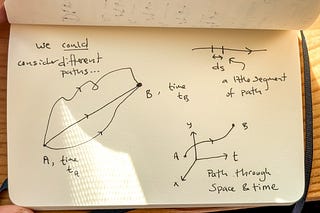 we could
consider different
paths...
B, time
t_B
A, time
t_a
ds
a little segment
of path
y
B
A
t
x
Path through
Space & time